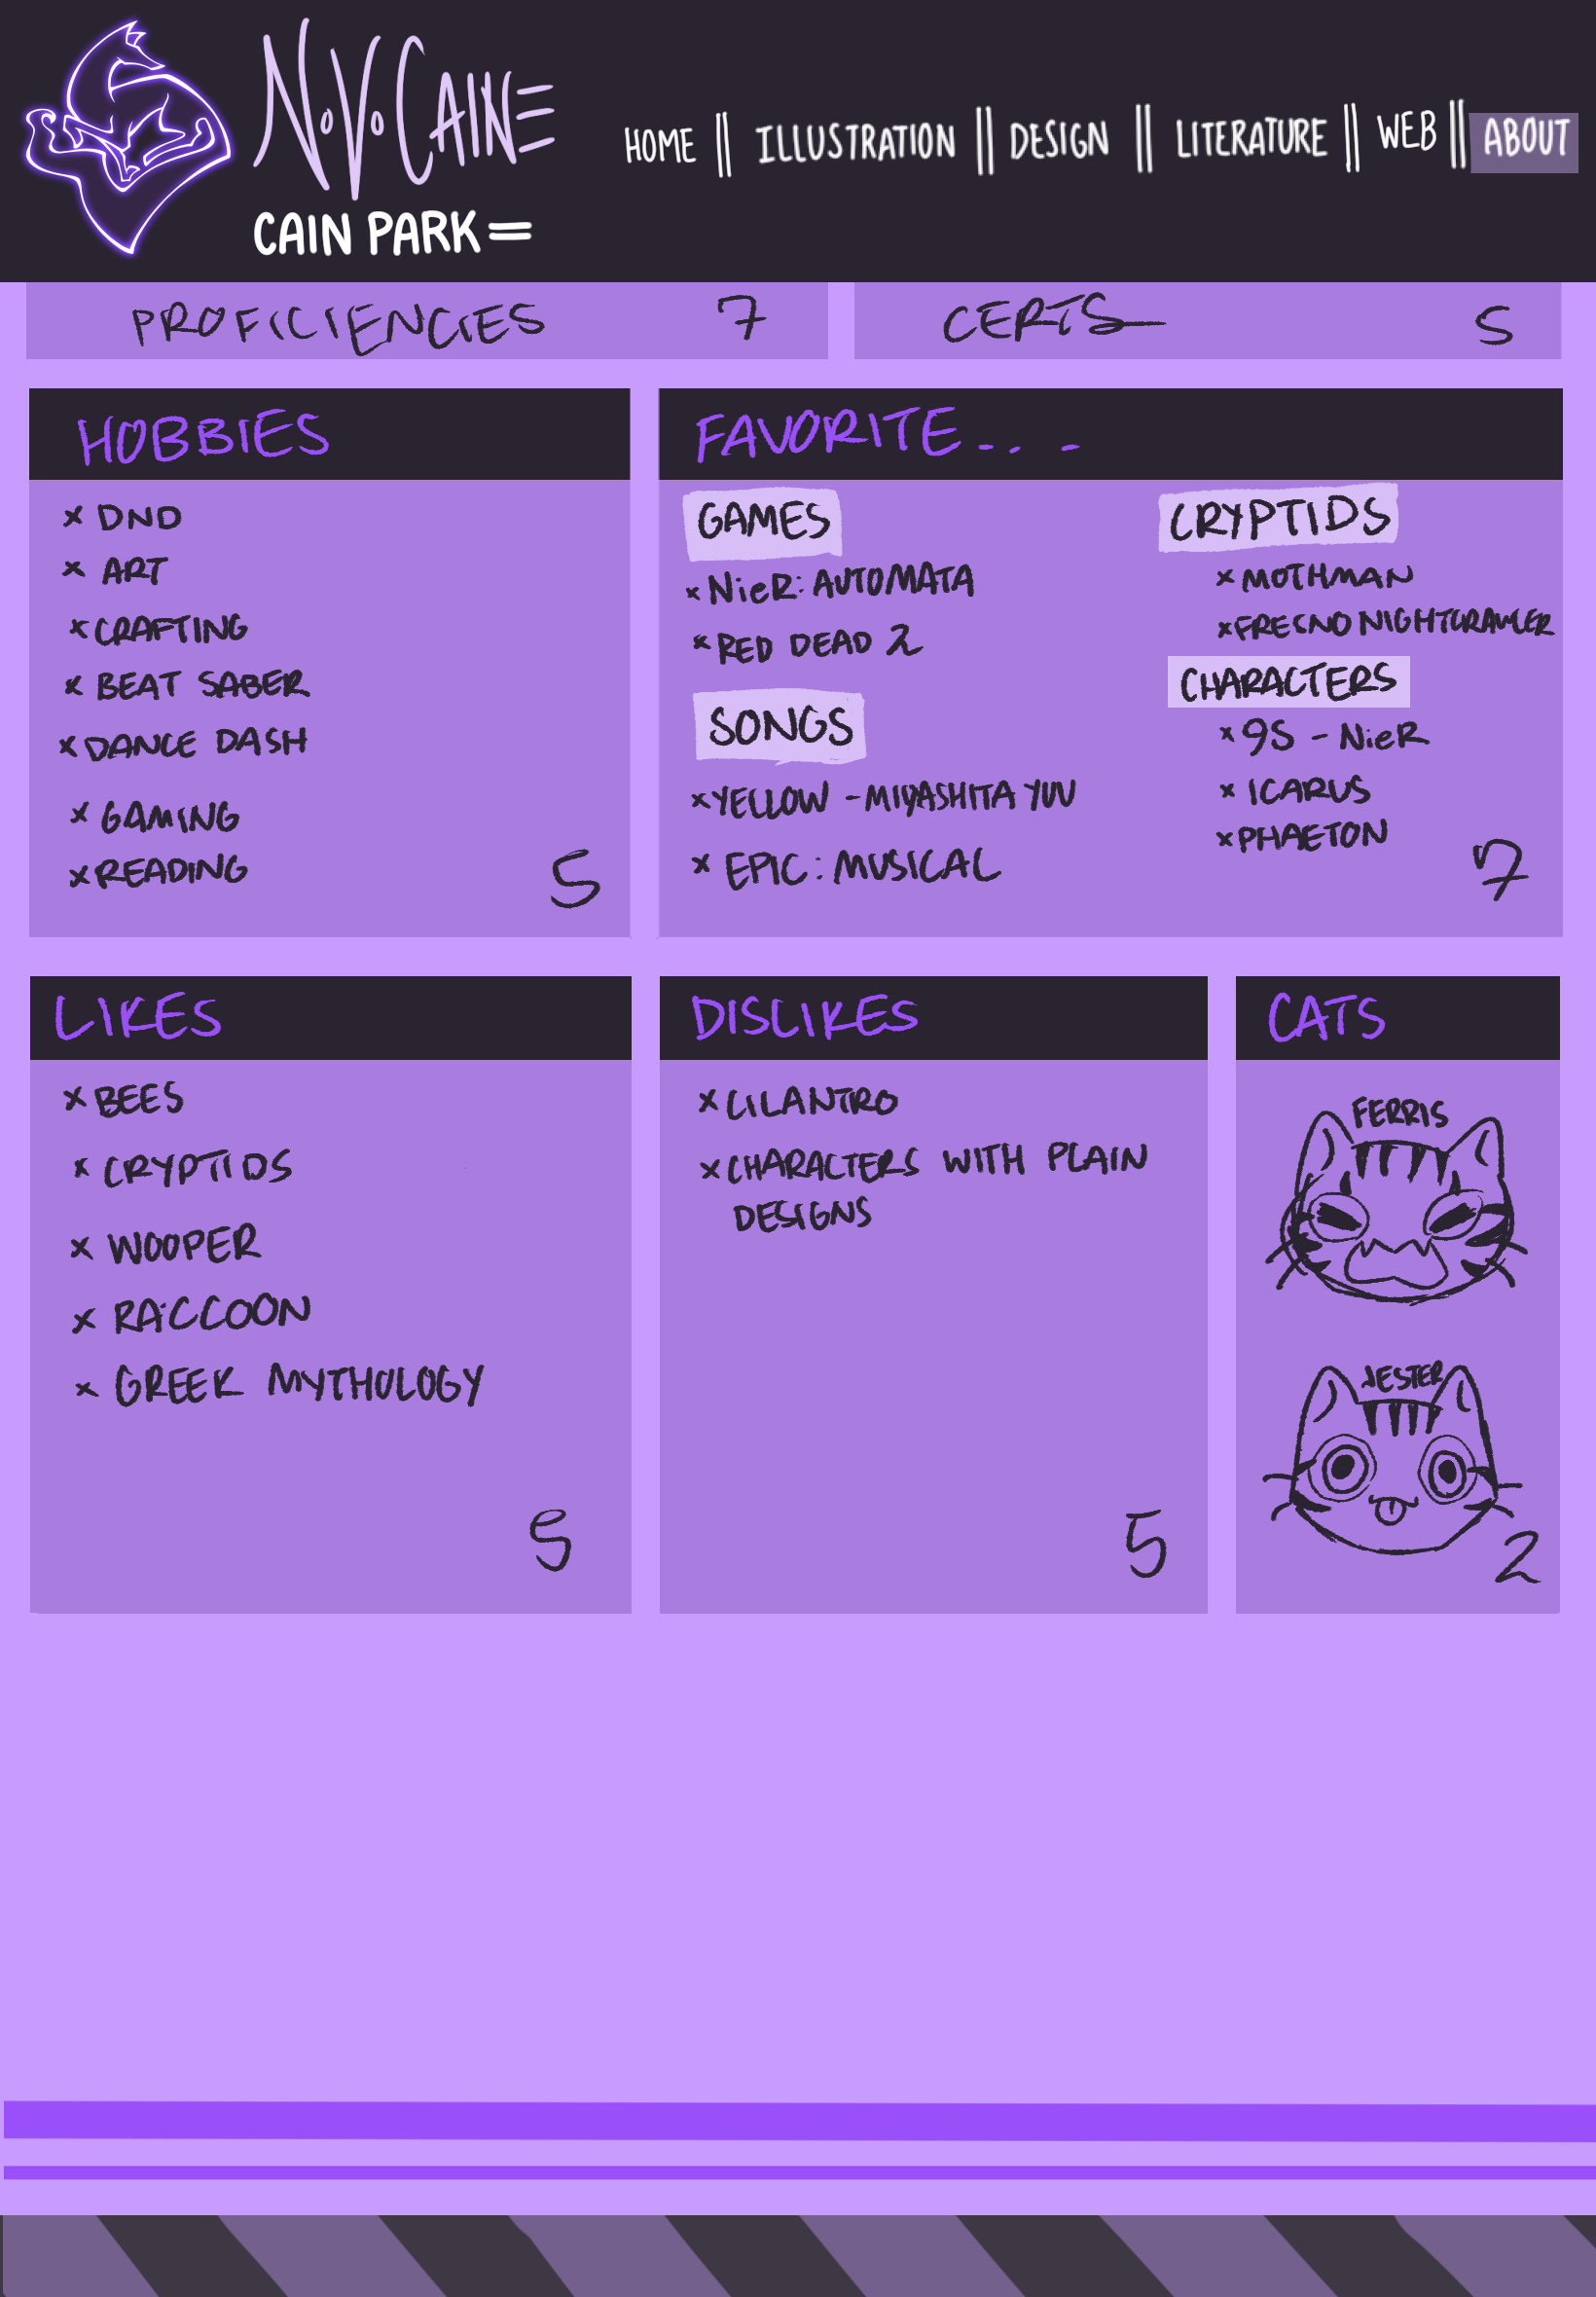 NOVOCAINE
CAIN PARK =
HOME || ILLUSTRATION || DESIGN || LITERATURE || WEB || ABOUT
PROFICIENCIES 7
CERTS 5
HOBBIES
x DND
x ART
x CRAFTING
x BEAT SABER
x DANCE DASH
x GAMING
x READING
5
FAVORITE....
GAMES
x NieR: AUTOMATA
x RED DEAD 2
SONGS
x YELLOW - MIYASHITA YUU
x EPIC: MUSICAL
CRYPTIDS
x MOTHMAN
x FRESNO NIGHTCRAWLER
CHARACTERS
x 9S - NieR
x ICARUS
x PHAETON
7
LIKES
x BEES
x CRYPTIDS
x WOOPER
x RACCOON
x GREEK MYTHOLOGY
5
DISLIKES
x CILANTRO
x CHARACTERS WITH PLAIN
DESIGNS
5
CATS
FERRIS
JESTER
2